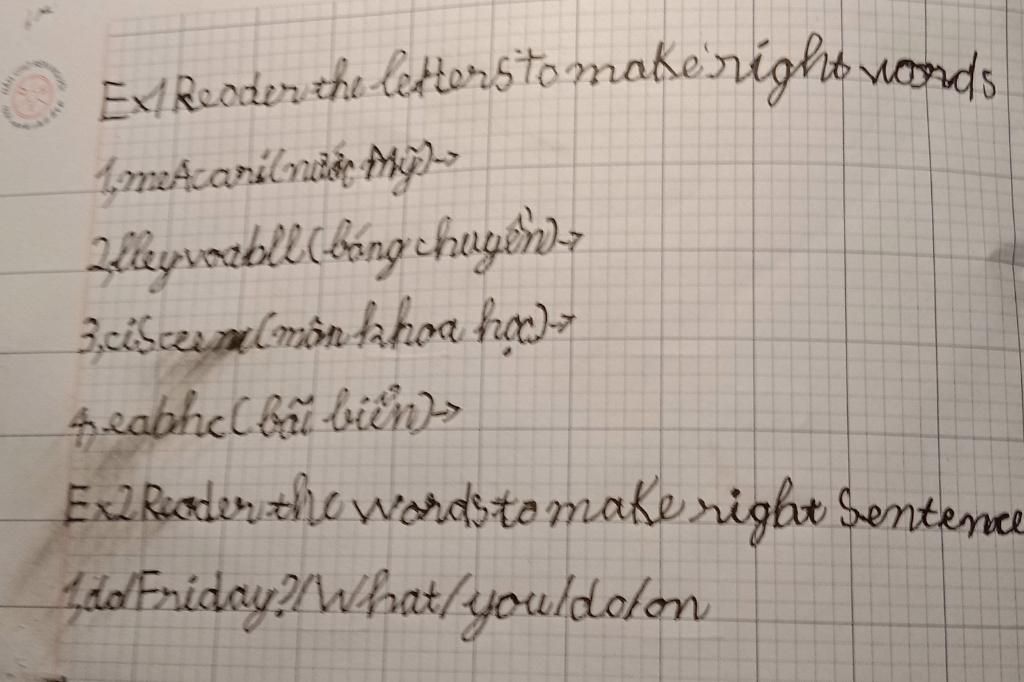 Ex1 Reoder the letters to make right words
1, meAcani (nước Mỹ) →
2, lleyvoabll (bóng chuyền) →
3, cisceen (môn khoa học) →
4, eabhc (bãi biển) →
Ex2 Reoder the words to make right Sentence
1, do/Friday?/What/you/do/on